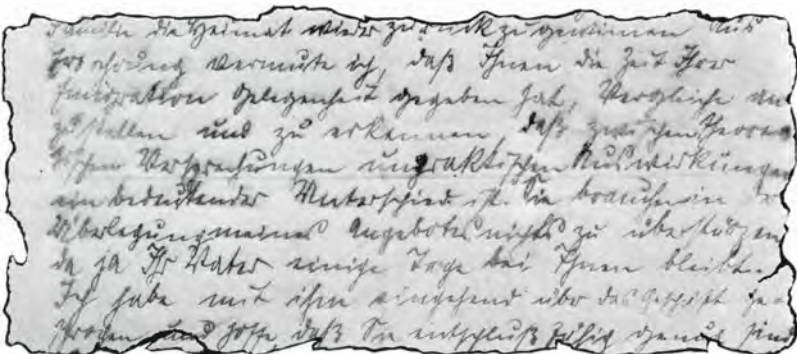 Familie die Heimat wieder zurückzugewinnen Aus
Erfahrung vermute ich, daß Ihnen die Zeit Ihrer
Emigration Gelegenheit gegeben hat, Vergleiche an
zustellen und zu erkennen, daß zwischen theore
tischen Versprechungen und praktischen Auswirkungen
ein bedeutender Unterschied ist. Sie brauchen in
Überlegung meines Angebotes nichts zu überstürzen
da ja Ihr Vater einige Tage bei Ihnen bleibt.
Ich habe mit ihm eingehend über das Geschäft ge-
sprochen und hoffe, daß Sie entschlußfähig genug sind